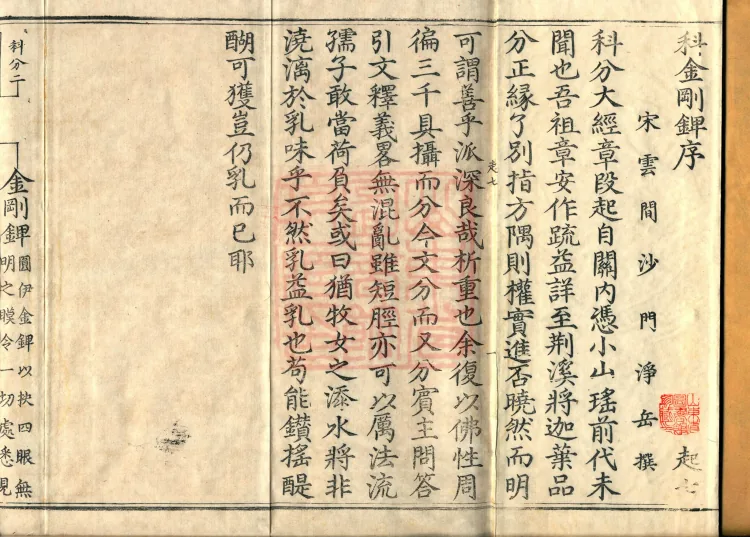 科金剛錍序
起七
宋雲間沙門淨岳撰
科分大經章段起自關內憑小山瑤前代未
聞也吾祖章安作疏益詳至荆溪將迦葉品
分正緣了別指方隅則權實進否曉然而明
可謂善乎派深良哉析重也余復以佛性周
徧三千具攝而分今文分而又分賓主問答
引文釋義畧無混亂雖短脛亦可以厲法流
孺子敢當荷負矣或曰猶牧女之添水將非
澆漓於乳味乎不然乳益乳也苟能鑚搖醍
醐可獲豈仍乳而已耶
金剛錍
圓伊金錍以抉四眼無
明之膜令一切處悉見
科分二